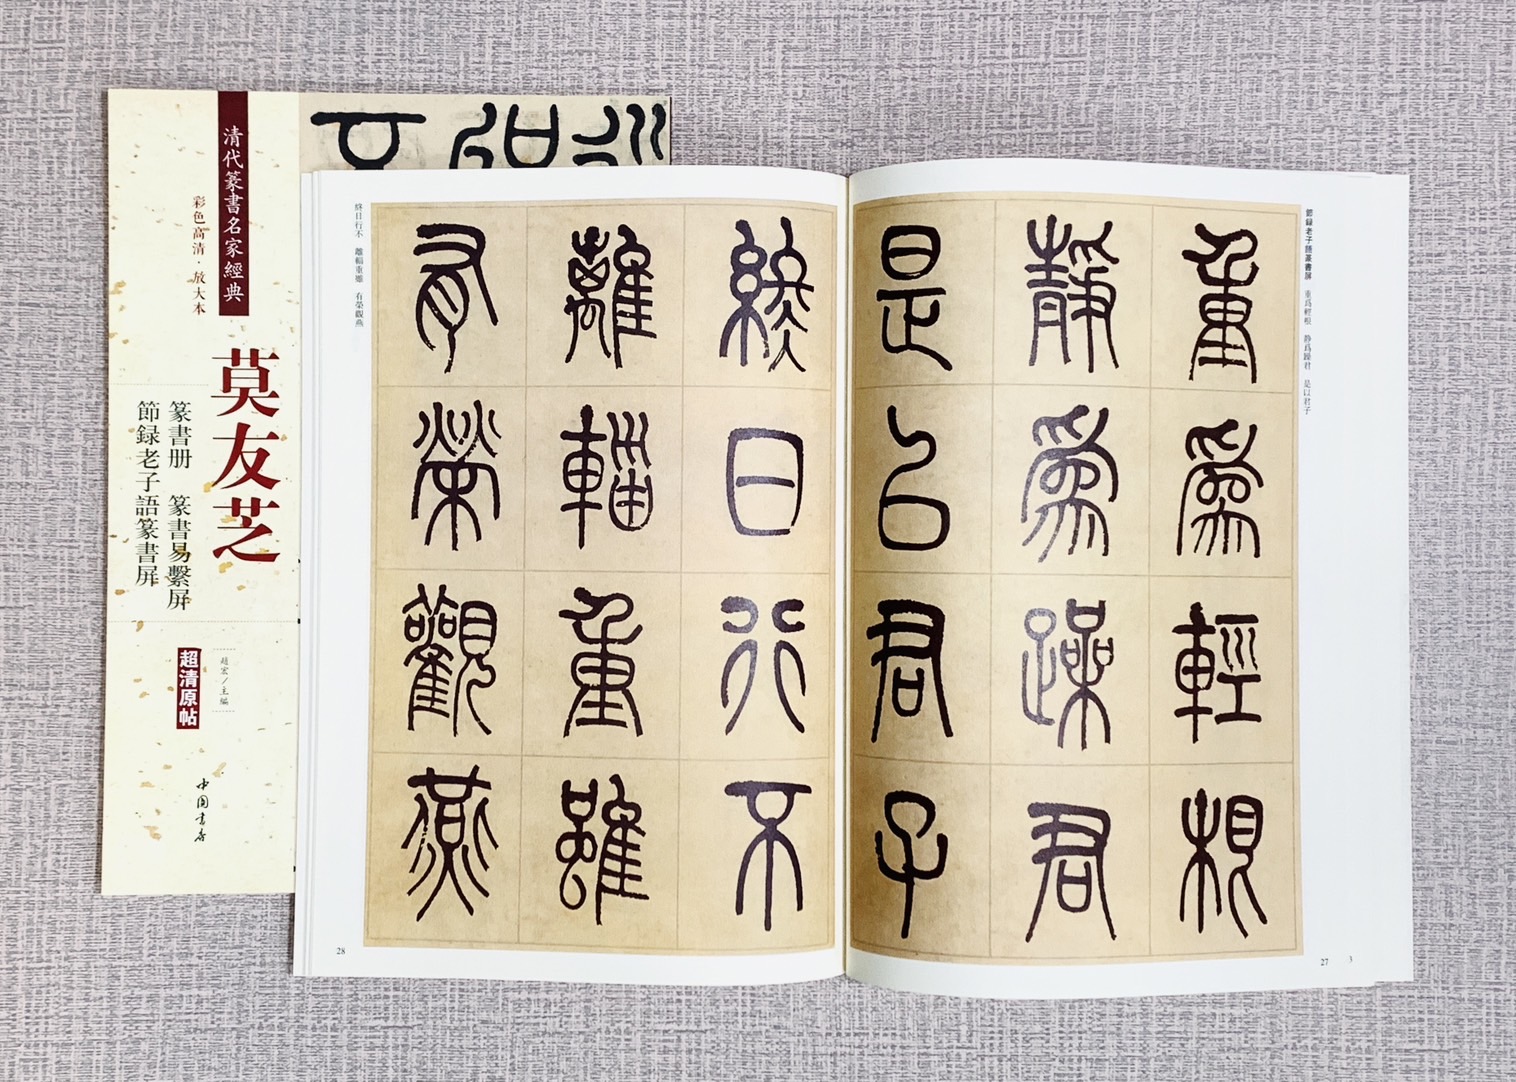 清代篆書名家經典
彩色高清·放大本
莫友芝
篆書册 篆書易繫屏
節録老子語篆書屏
超清原帖
趙宏/主編
中国書店
節録老子語篆書屏 重爲輕根 静爲躁君 是以君子
重爲輕根
静爲躁君
是以君子
27
3
終日行不 離輜重雖 有榮觀燕
終日行不
離輜重雖
有榮觀燕
28